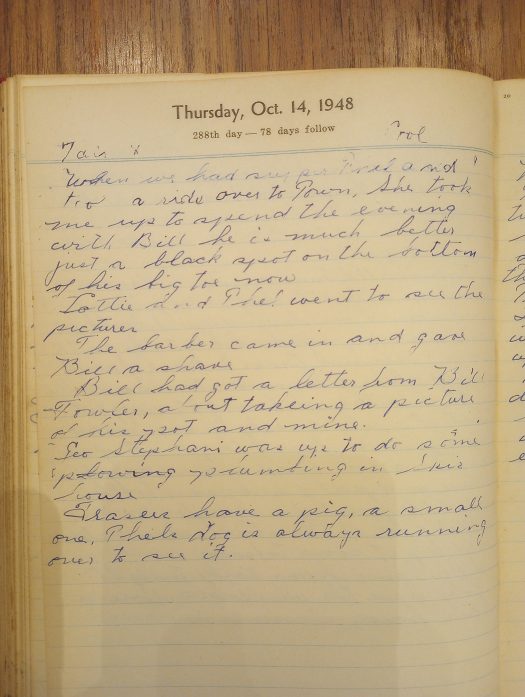 Thursday, Oct. 14, 1948
288th day — 78 days follow
Fair & Cool
When we had supper and
a ride over to Town, she took
me up to spend the evening
with Bill he is much better
just a black spot on the bottom
of his big toe now
Lottie and Phel went to see the
pictures
The barber came in and gave
Bill a shave
Bill had got a letter from Bill
Fowler, about takeing a picture
of his yot and mine.
Geo Stephani was up to do some
plowing plumbing in
house
Frasers have a pig, a small
one, Phels dog is always running
over to see it.